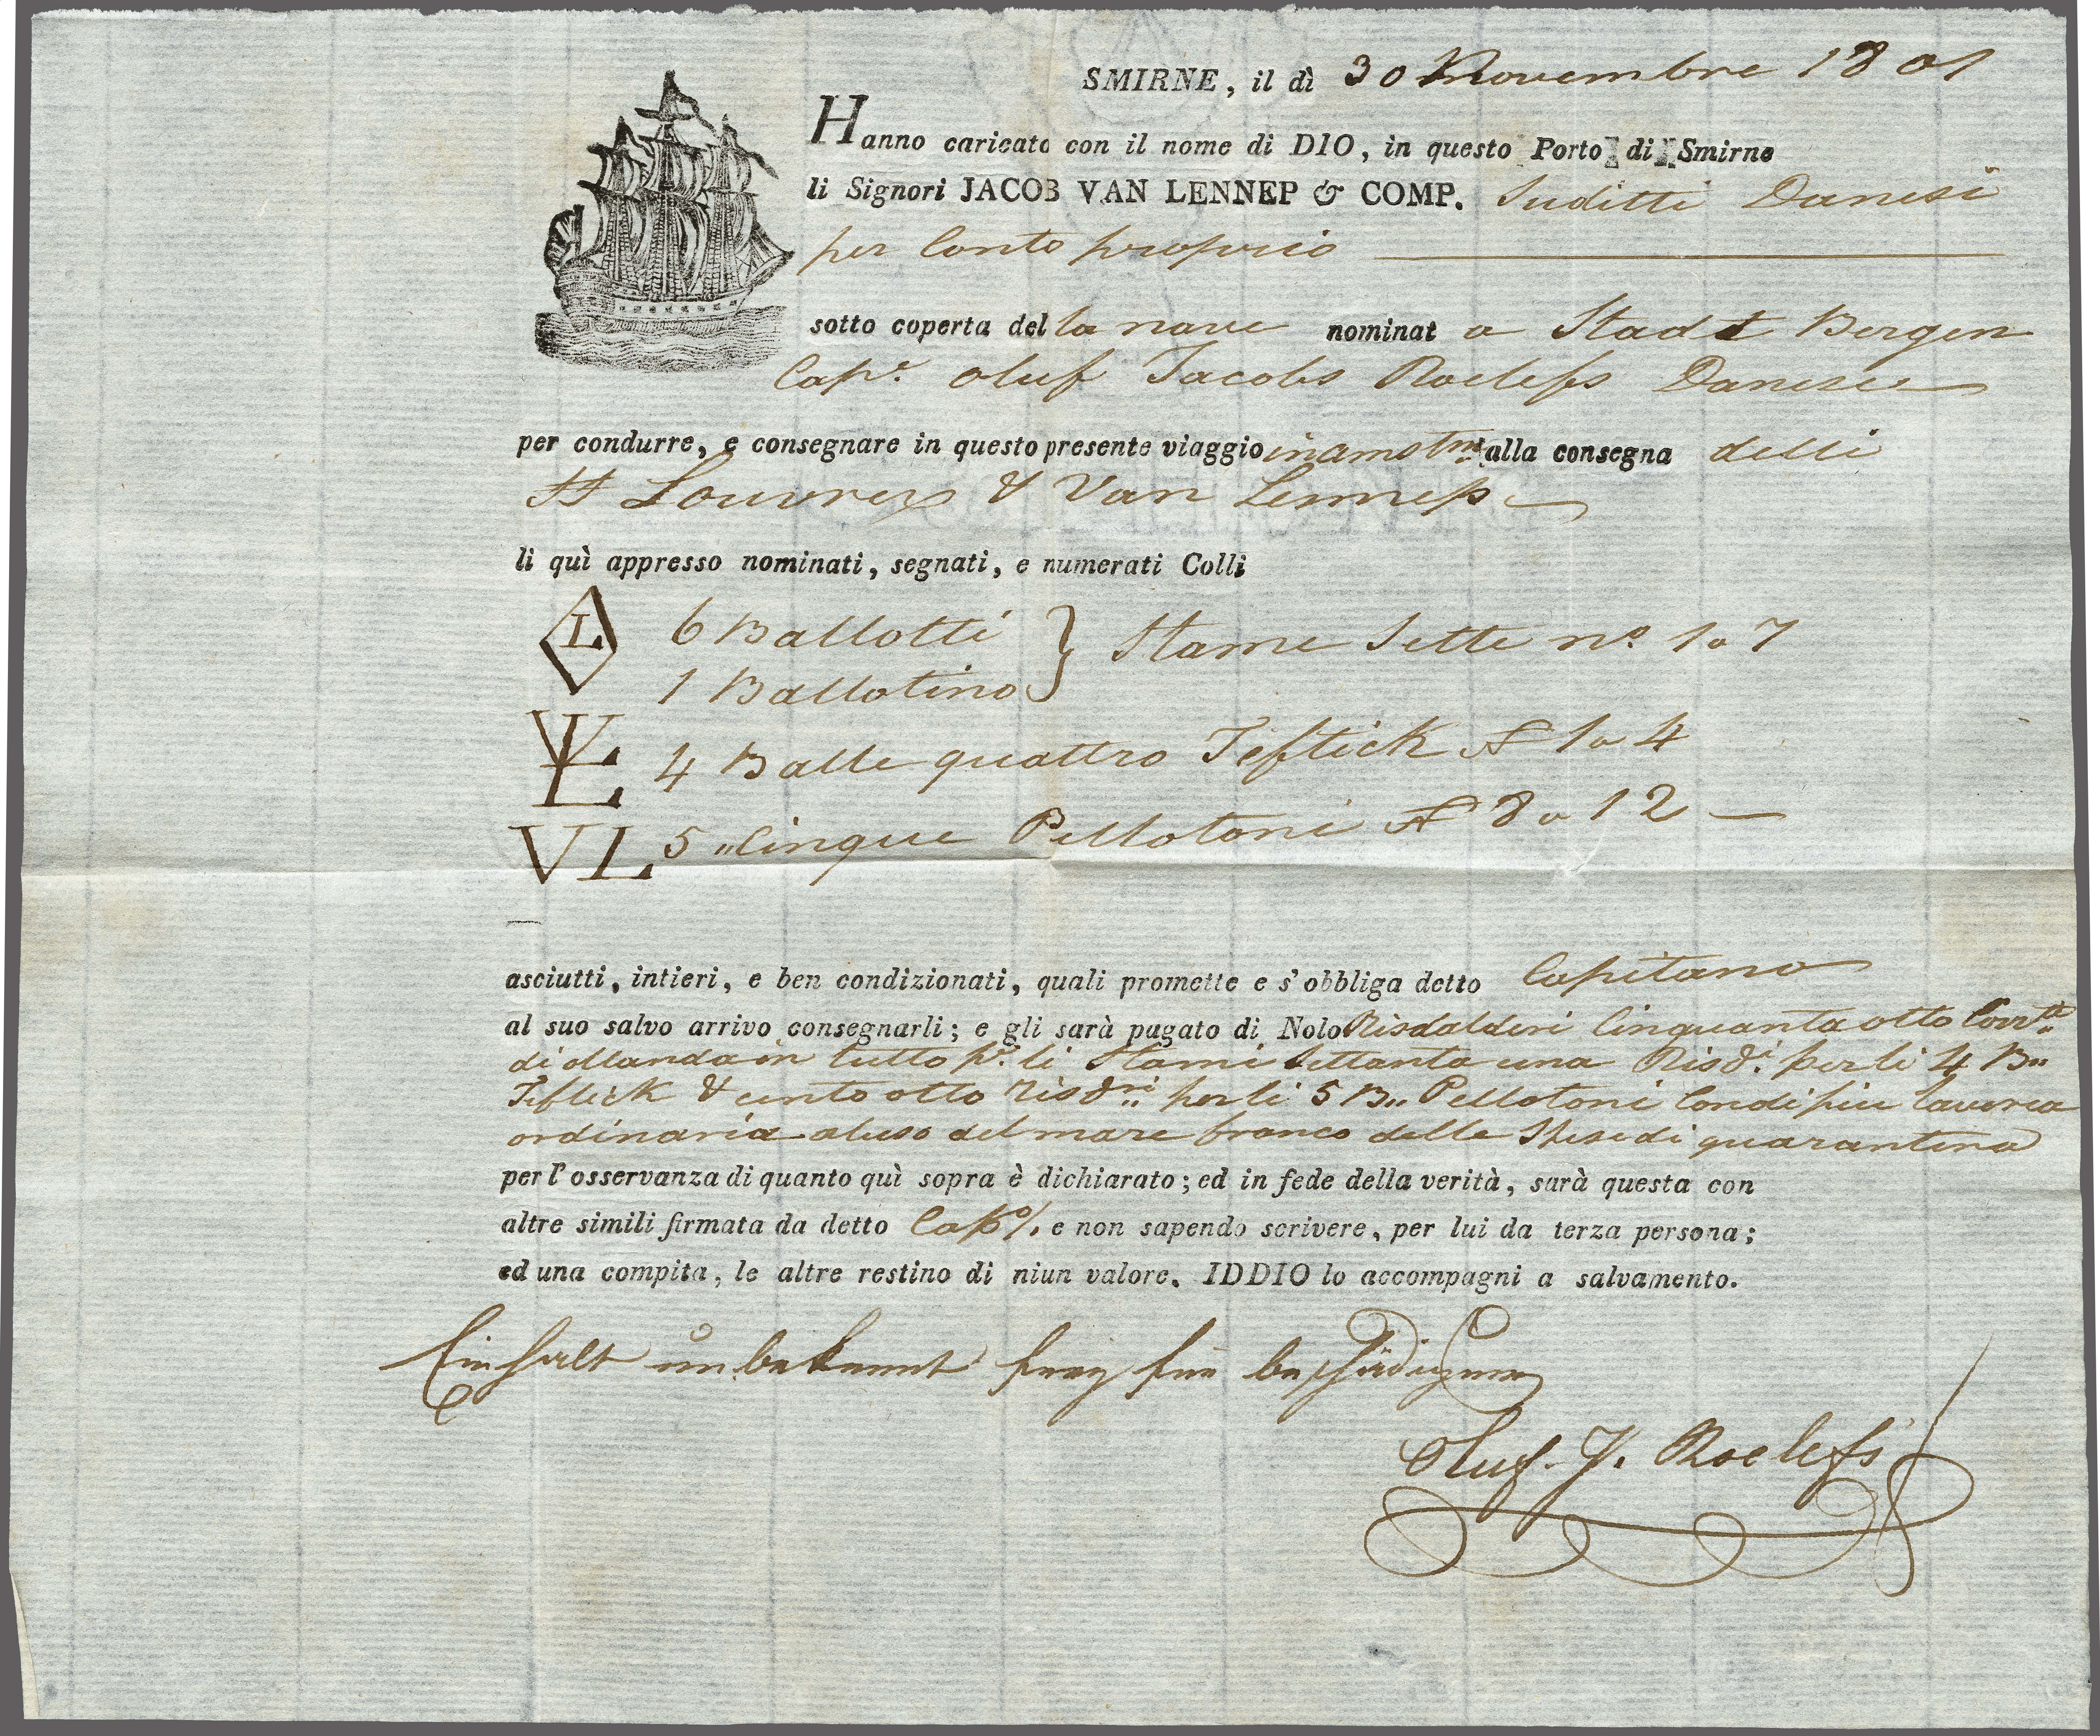 SMIRNE, il dì 30 Novembre 1801
Hanno caricato con il nome di DIO, in questo Porto di Smirne
li Signori JACOB VAN LENNEP & COMP. Suditti Danesi
per Conto proprio
sotto coperta del la nave nominat a Stadt Bergen
Capⁿ. Oluf Jacobs Roelefs Danese
per condurre, e consegnare in questo presente viaggio in amstᵐ alla consegna delli
SS Louvrex & Van Lennep
li quì appresso nominati, segnati, e numerati Colli
L 6 Ballotti } Stame Sette nº. 1 a 7
1 Ballotino
VL 4 Balle quattro Teftick Nº 1 a 4
VL 5 „ Cinque Pellotoni Nº 8 a 12 —
asciutti, intieri, e ben condizionati, quali promette e s'obbliga detto Capitano
al suo salvo arrivo consegnarli; e gli sarà pagato di Nolo Risdalderi Cinquanta otto Corrᵗⁱ
di ollanda in tutto pʳ. li Stami Settanta una Risdⁱ. per li 4 B„
Teftick & cento otto Risdʳⁱ. per li 5 B„ Pellotoni Con di più l'averea
ordinaria al uso del mare franco delle Spese di quarantena
per l'osservanza di quanto quì sopra è dichiarato; ed in fede della verità, sarà questa con
altre simili firmata da detto Capº/. e non sapendo scrivere, per lui da terza persona;
ed una compita, le altre restino di niun valore. IDDIO lo accompagni a salvamento.
Einhalt unbekannt frey für beschädigung
Oluf. J. Roelefs